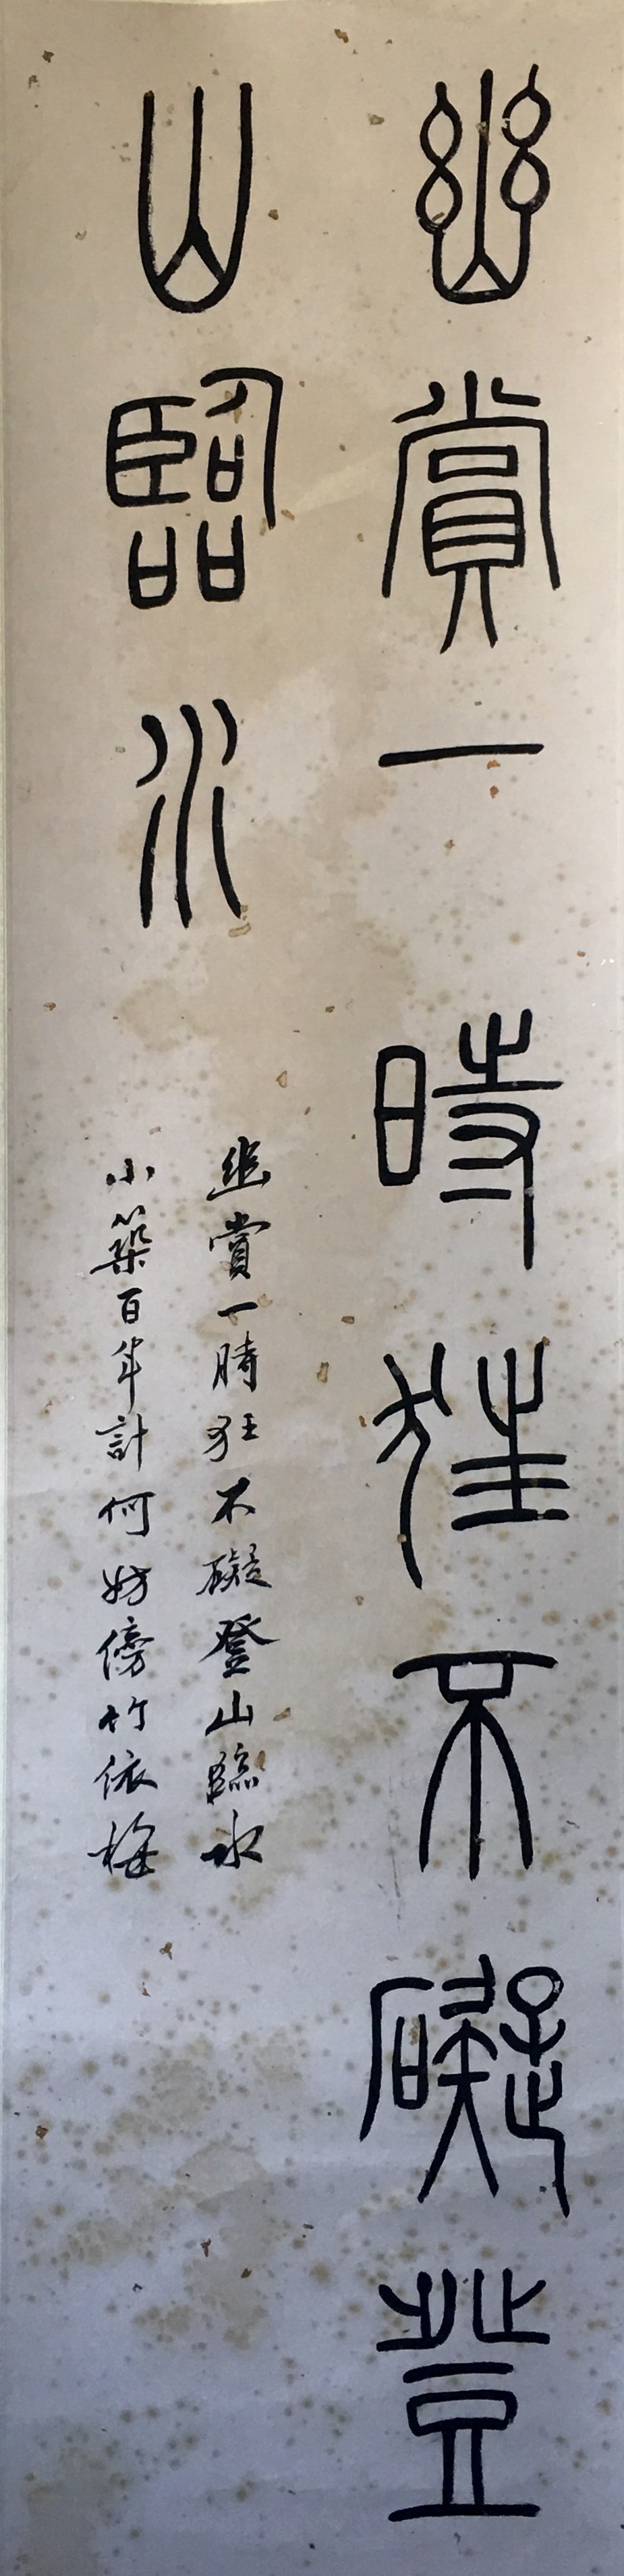 幽賞一時狂不礙登
山臨水
幽賞一時狂不礙登山臨水
小築百年計何妨傍竹依梅